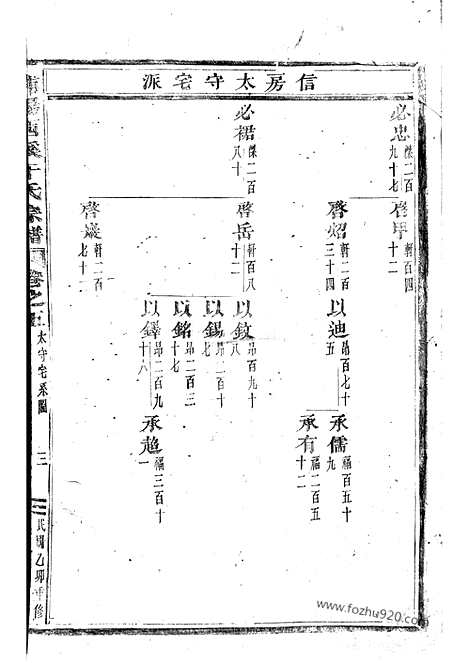 信房太守宅派
必忠 傑二百九十七
啓甲 軒百四十二
啓炤 軒二百三十四
以迪 昂百七十五
承儒 福百五十九
承有 福二百五十二
必裾 傑二百八十
啓岳 軒百八十二
以欽 昂百九十八
以錫 昂二百七
以銘 昂二百三十七
以鐸 昂二百九十八
承趨 福三百十一
啓巖 軒二百七十二
西溪于氏宗譜 卷之五 太守宅系圖 三 民國乙卯重修
www.fozhu920.com